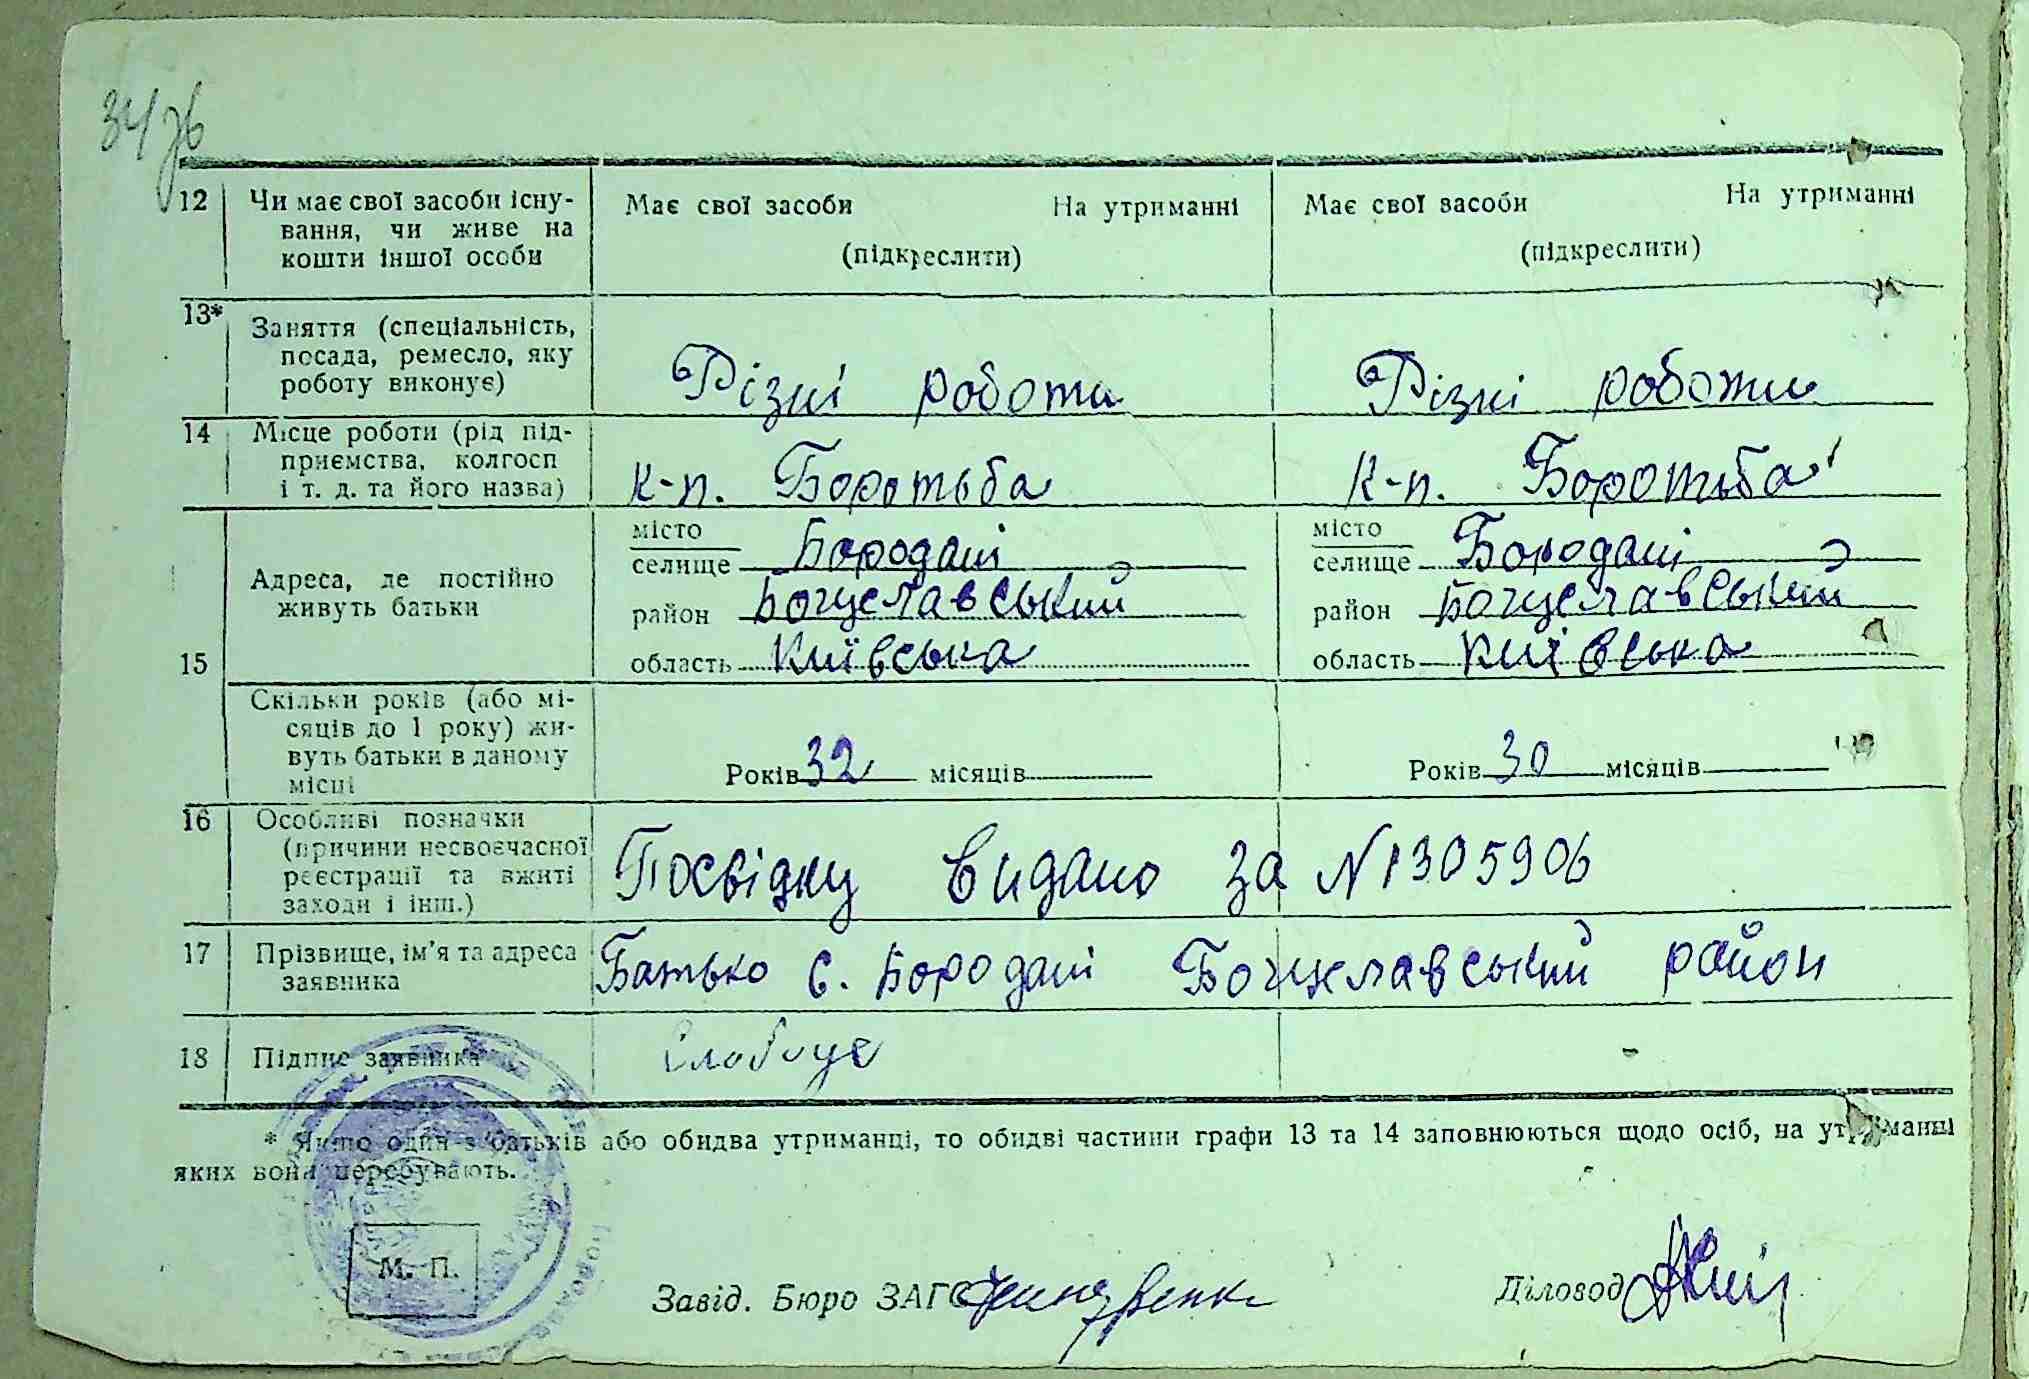 34/76
12 Чи має свої засоби існу- Має свої засоби На утриманні Має свої засоби На утриманні
вання, чи живе на
кошти іншої особи (підкреслити) (підкреслити)
13* Заняття (спеціальність,
посада, ремесло, яку
роботу виконує) Різні роботи Різні роботи
14 Місце роботи (рід під-
приємства, колгосп
і т. д. та його назва) К-п. Боротьба К-п. Боротьба
15 Адреса, де постійно
живуть батьки
місто
селище Бородані
район Богуславський
область Київська
місто
селище Бородані
район Богуславський
область Київська
Скільки років (або мі-
сяців до 1 року) жи-
вуть батьки в даному
місці Років 32 місяців Років 30 місяців
16 Особливі позначки
(причини несвоєчасної
реєстрації та вжиті
заходи і інш.) Посвідку видано за №1305906
17 Прізвище, ім'я та адреса
заявника Батько с. Бородані Богуславський район
18 Підпис заявника
* Якщо один з батьків або обидва утриманці, то обидві частини графи 13 та 14 заповнюються щодо осіб, на утриманні
яких вони перебувають.
М. П.
Завід. Бюро ЗАГС Діловод